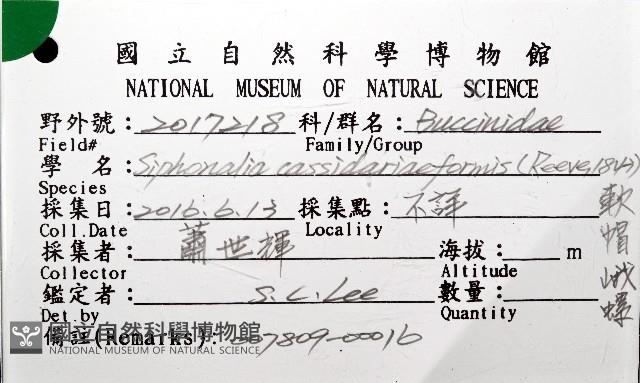 國立自然科學博物館
NATIONAL MUSEUM OF NATURAL SCIENCE
野外號：2017218 科/群名：Buccinidae
Field# Family/Group
學 名：Siphonalia cassidariaeformis (Reeve, 184
Species
採集日：2016.6.13 採集點：不詳
Coll.Date Locality
採集者：蕭世輝 海拔： m
Collector Altitude
鑑定者： S.C.Lee 數量：
Det.by Quantity
備註(Remarks)： 7809-00016
軟帽峨螺
國立自然科學博物館
NATIONAL MUSEUM OF NATURAL SCIENCE